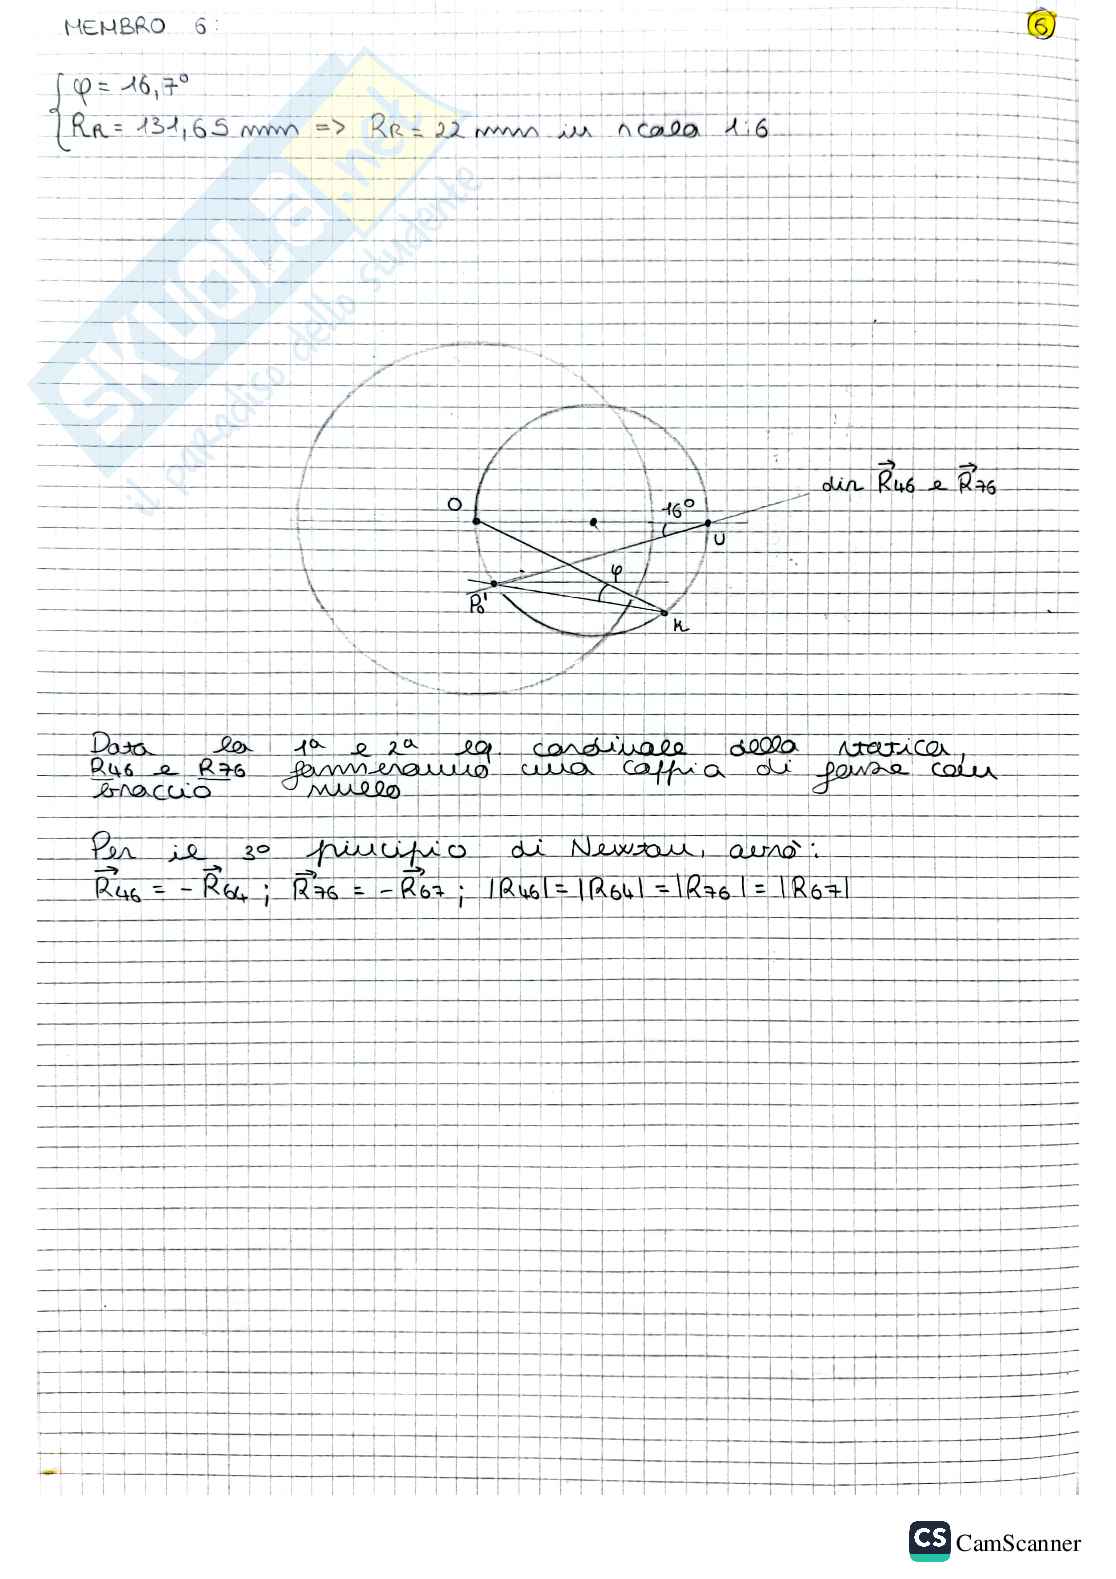 MEMBRO 6:
6
φ = 16,7°
RR = 131,65 mm => RR = 22 mm in scala 1:6
SKUOLA.net
il paradiso dello studente
dir R⃗46 e R⃗76
O
16°
U
φ
Po'
K
Data la 1a e 2a eq cardinale della statica,
R46 e R76 formeranno una coppia di forze con
braccio nullo
Per il 3° principio di Newton, avrò:
R⃗46 = -R⃗64 ; R⃗76 = -R⃗67 ; |R46| = |R64| = |R76| = |R67|
CS CamScanner